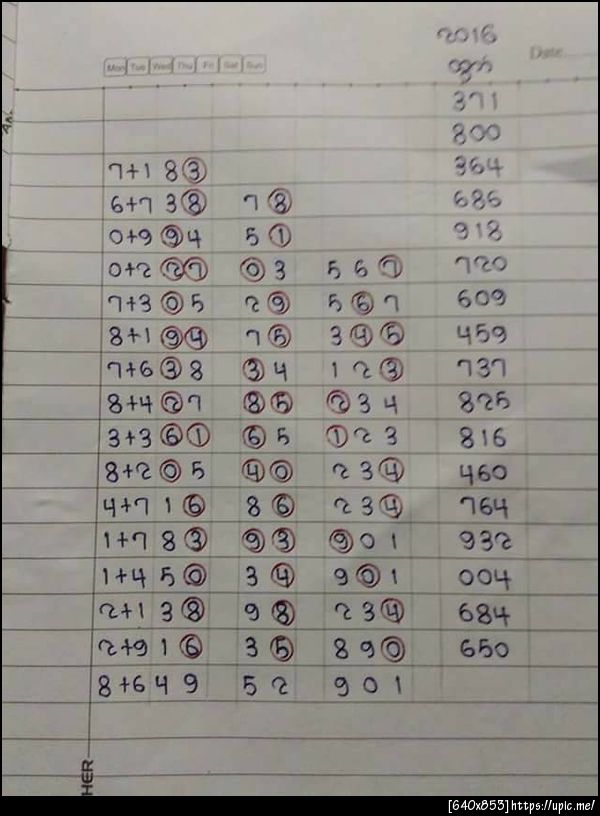 2016
Mon Tue Wed Thu Fri Sat Sun Date
371
800
7+1 8 3 364
6+7 3 8 7 8 686
0+9 9 4 5 1 918
0+2 2 7 0 3 5 6 7 720
7+3 0 5 2 9 5 6 7 609
8+1 9 4 7 5 3 4 5 459
7+6 3 8 3 4 1 2 3 737
8+4 2 7 8 5 2 3 4 825
3+3 6 1 6 5 1 2 3 816
8+2 0 5 4 0 2 3 4 460
4+7 1 6 8 6 2 3 4 764
1+7 8 3 9 3 9 0 1 932
1+4 5 0 3 4 9 0 1 004
2+1 3 8 9 8 2 3 4 684
2+9 1 6 3 5 8 9 0 650
8+6 4 9 5 2 9 0 1
HER
[640x853]https://upic.me/